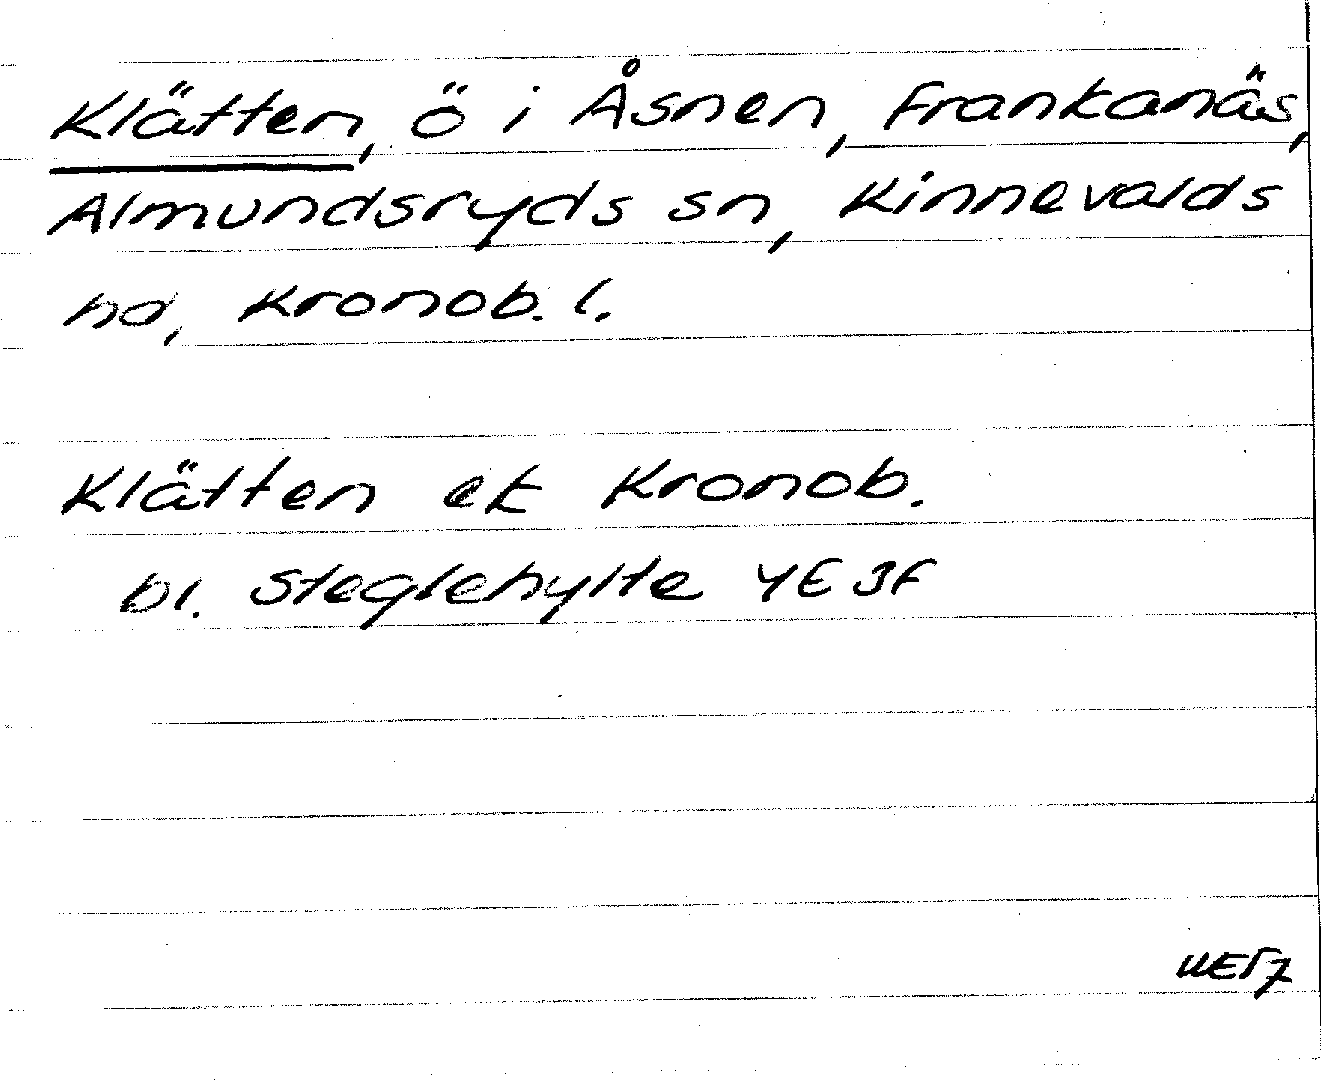 Klätten, ö i Åsnen, Frankanäs,
Almundsryds sn, Kinnevalds
hd, Kronob. l.
Klätten ek Kronob.
bl. Steglehylte 4E 3f